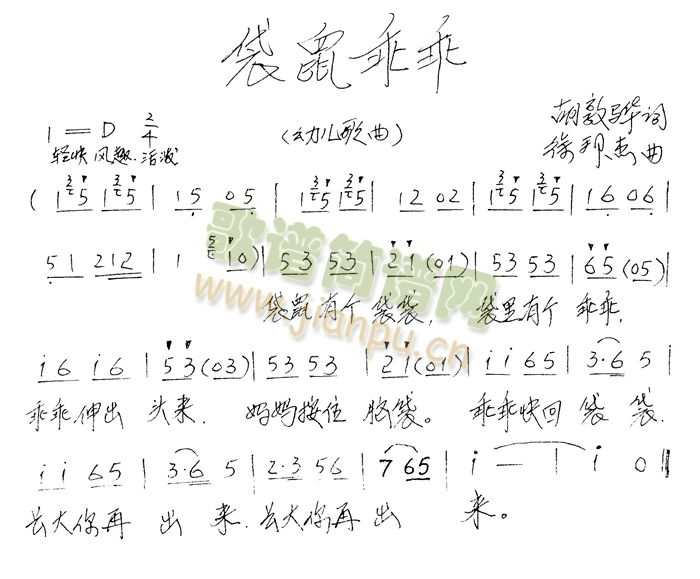 袋鼠乖乖
1=D 2/4
(幼儿歌曲)
胡敦骅词
轻快 风趣.活泼
徐邦杰曲
( 1 3 5 1 3 5 | 1 5 0 5 | 1 3 5 1 3 5 | 1 2 0 2 | 1 3 5 1 3 5 | 1 6 0 6 |
5 1 2 1 2 | 1 5 1 0 ) | 5 3 5 3 | 2 1 (0 1) | 5 3 5 3 | 6 5 (0 5) |
袋鼠有个袋袋, 袋里有个乖乖,
i 6 i 6 | 5 3 (0 3) | 5 3 5 3 | 2 1 (0 1) | i i 6 5 | 3·6 5 |
乖乖伸出 头来. 妈妈按住 胸袋。 乖乖快回 袋 袋.
i i 6 5 | 3·6 5 | 2·3 5 6 | 7 6 5 | i — | i 0 ‖
长大你再 出 来.长大你再 出 来。
歌谱简谱网
www.jianpu.cn